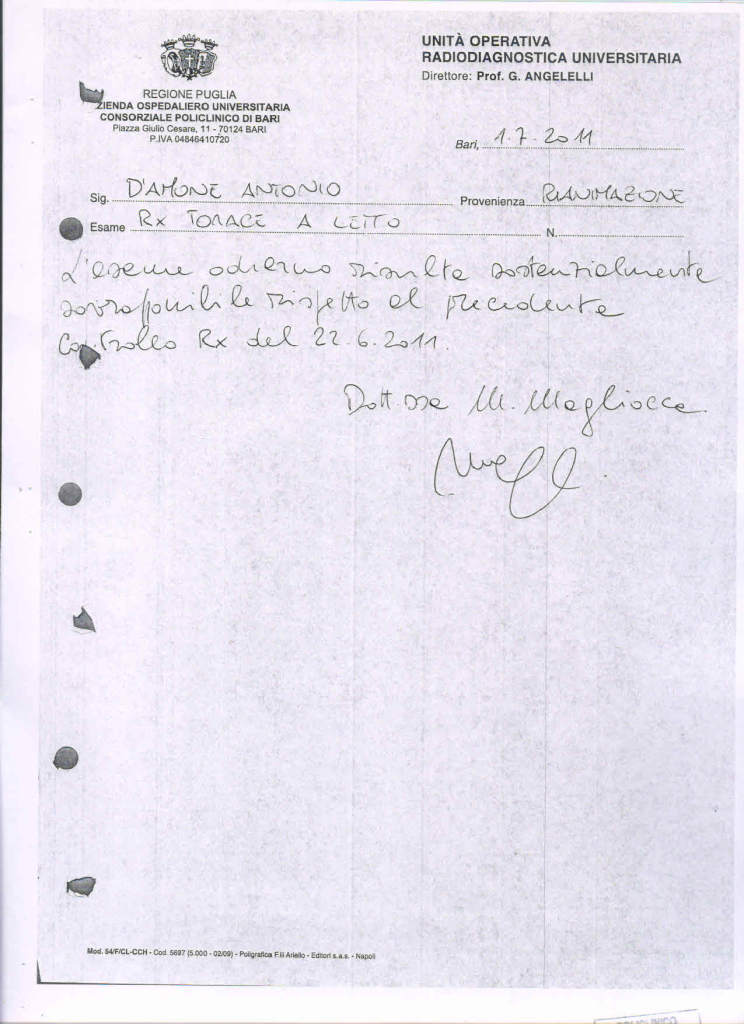 UNITÀ OPERATIVA
RADIODIAGNOSTICA UNIVERSITARIA
Direttore: Prof. G. ANGELELLI
REGIONE PUGLIA
ZIENDA OSPEDALIERO UNIVERSITARIA
CONSORZIALE POLICLINICO DI BARI
Piazza Giulio Cesare, 11 - 70124 BARI
P.IVA 04846410720
Bari, 1.7.2011
Sig. D'AMONE ANTONIO Provenienza RIANIMAZIONE
Esame Rx TORACE A LETTO N.
L'esame odierno risulta sostanzialmente
sovrapponibile rispetto al precedente
Controllo Rx del 22.6.2011.
Dott.ssa M. Magliocca
Mod. 54/F/CL-CCH - Cod. 5697 (5.000 - 02/09) - Poligrafica F.lli Ariello - Editori s.a.s. - Napoli